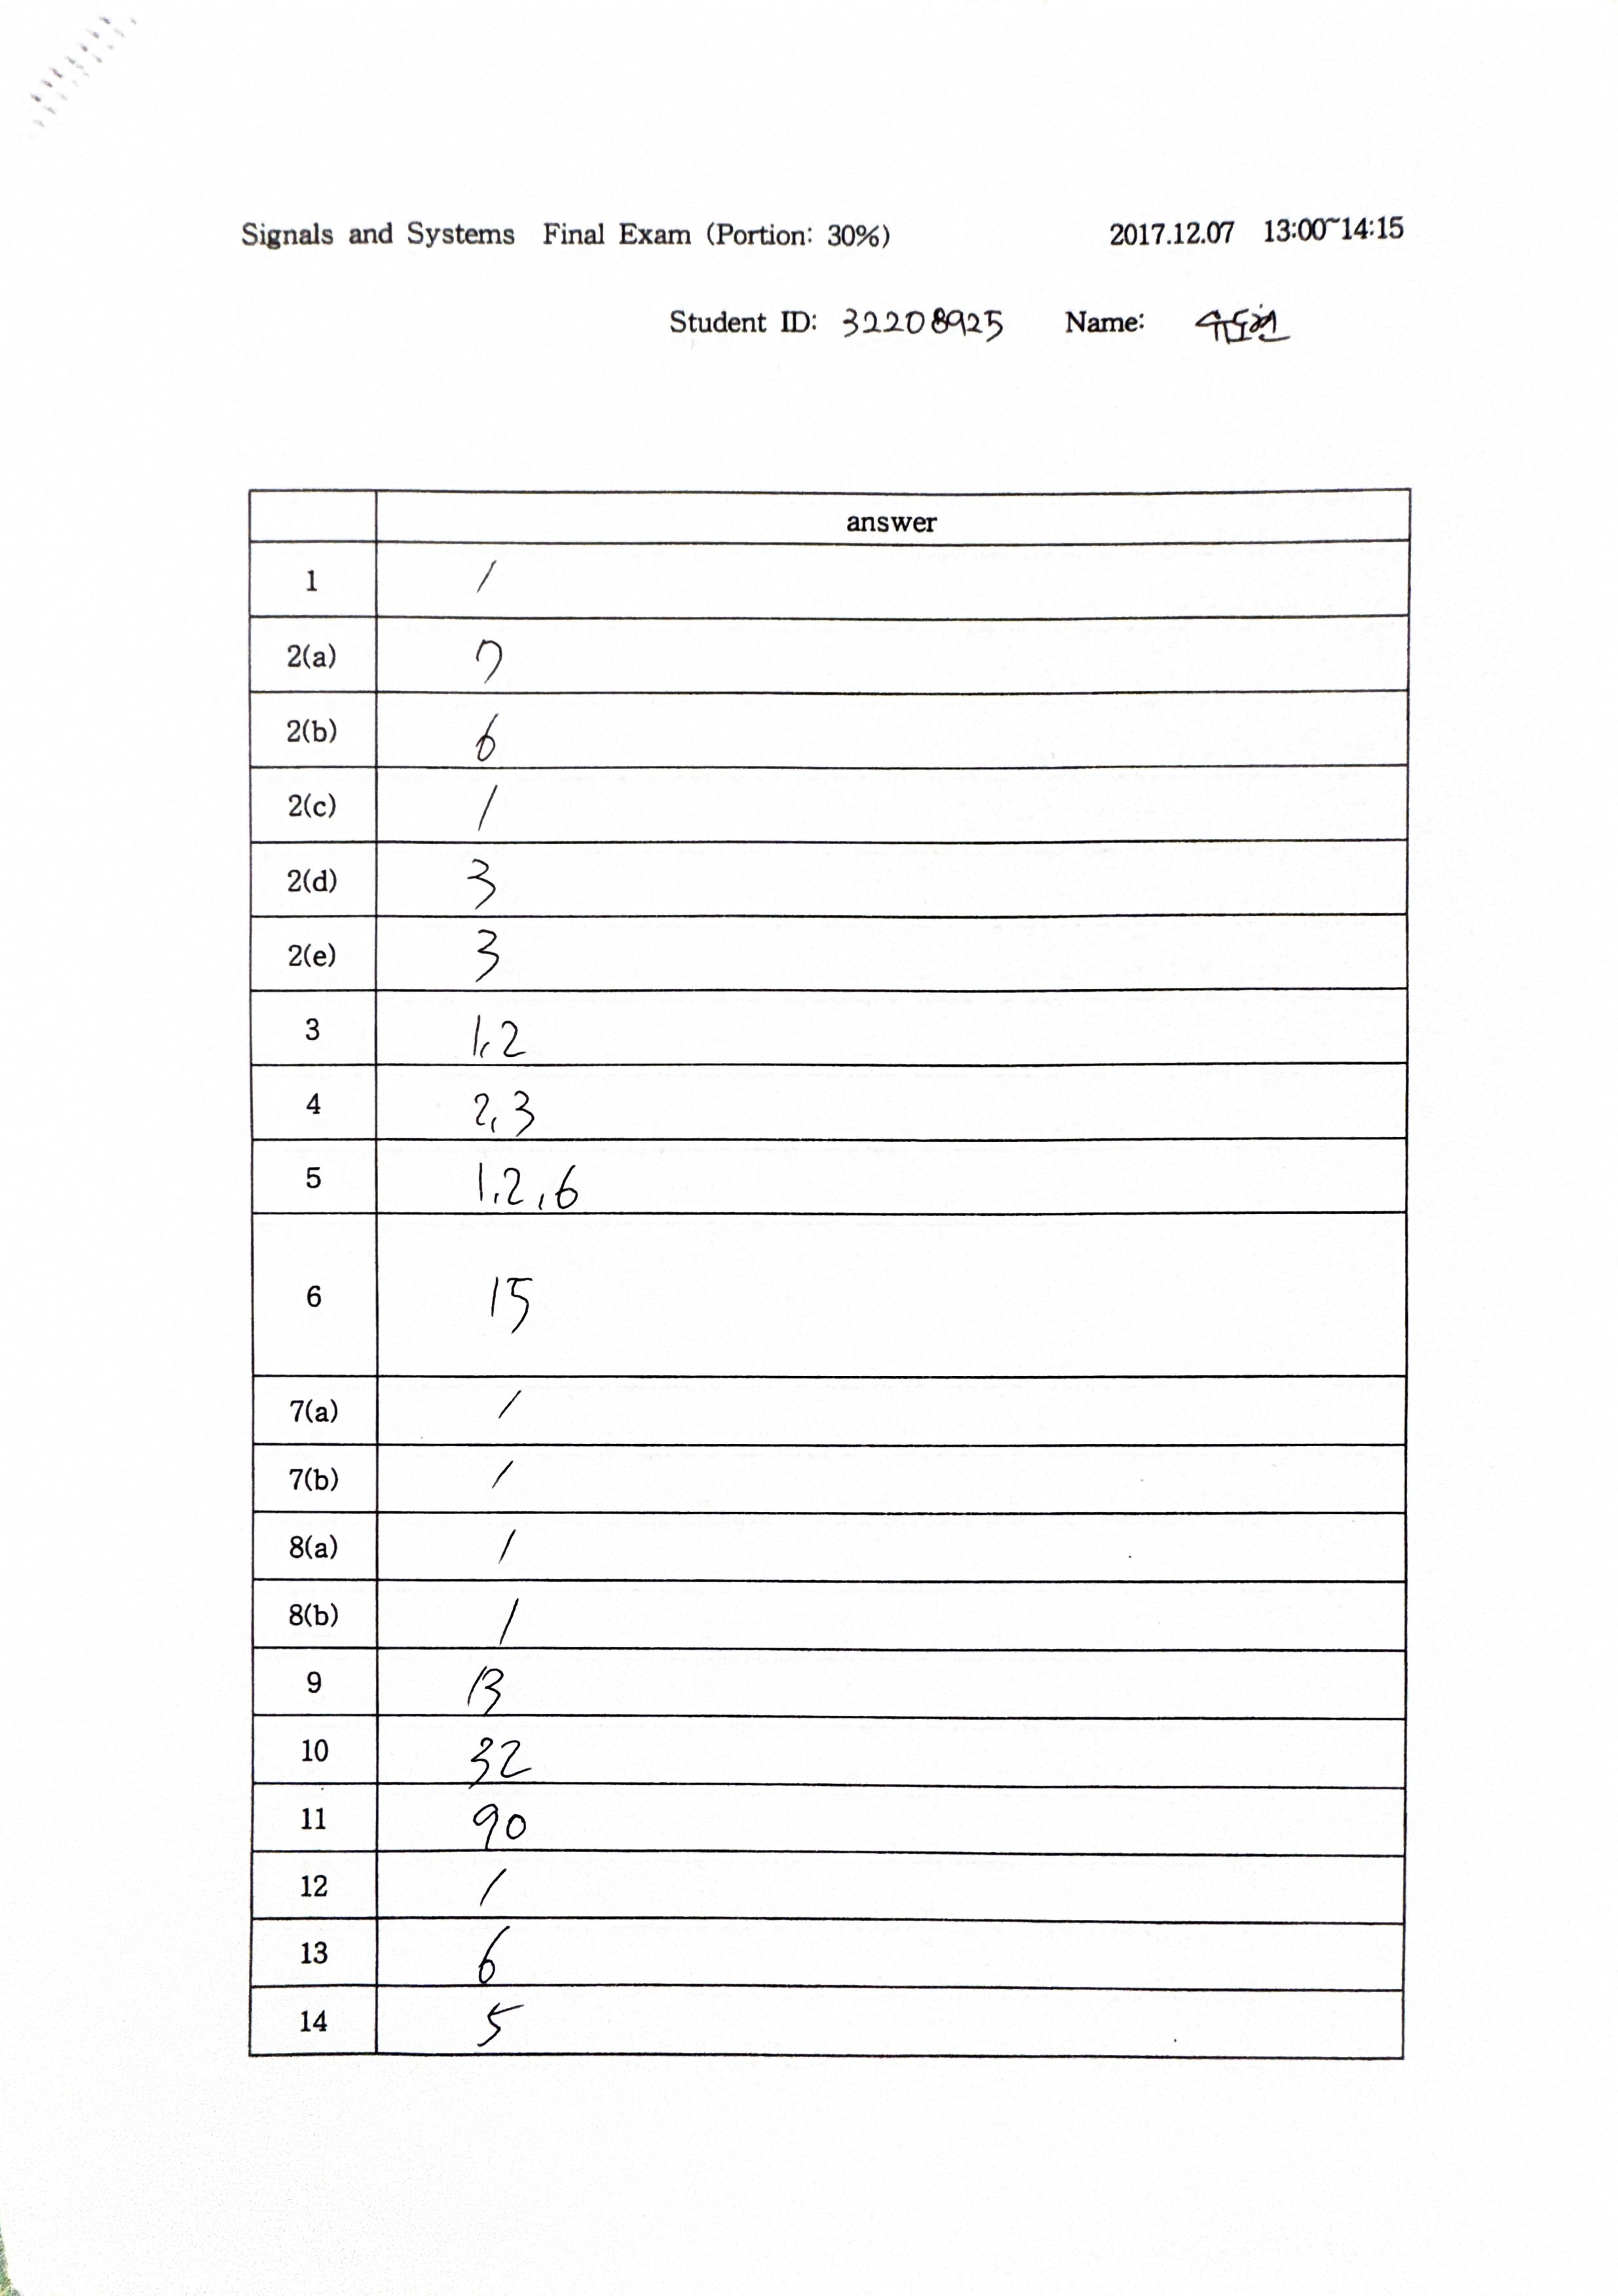 Signals and Systems Final Exam (Portion: 30%) 2017.12.07 13:00~14:15
Student ID: 32208925 Name: 유도현
answer
1 1
2(a) 7
2(b) 6
2(c) 1
2(d) 3
2(e) 3
3 1,2
4 2,3
5 1,2,6
6 15
7(a) 1
7(b) 1
8(a) 1
8(b) 1
9 13
10 32
11 90
12 1
13 6
14 5